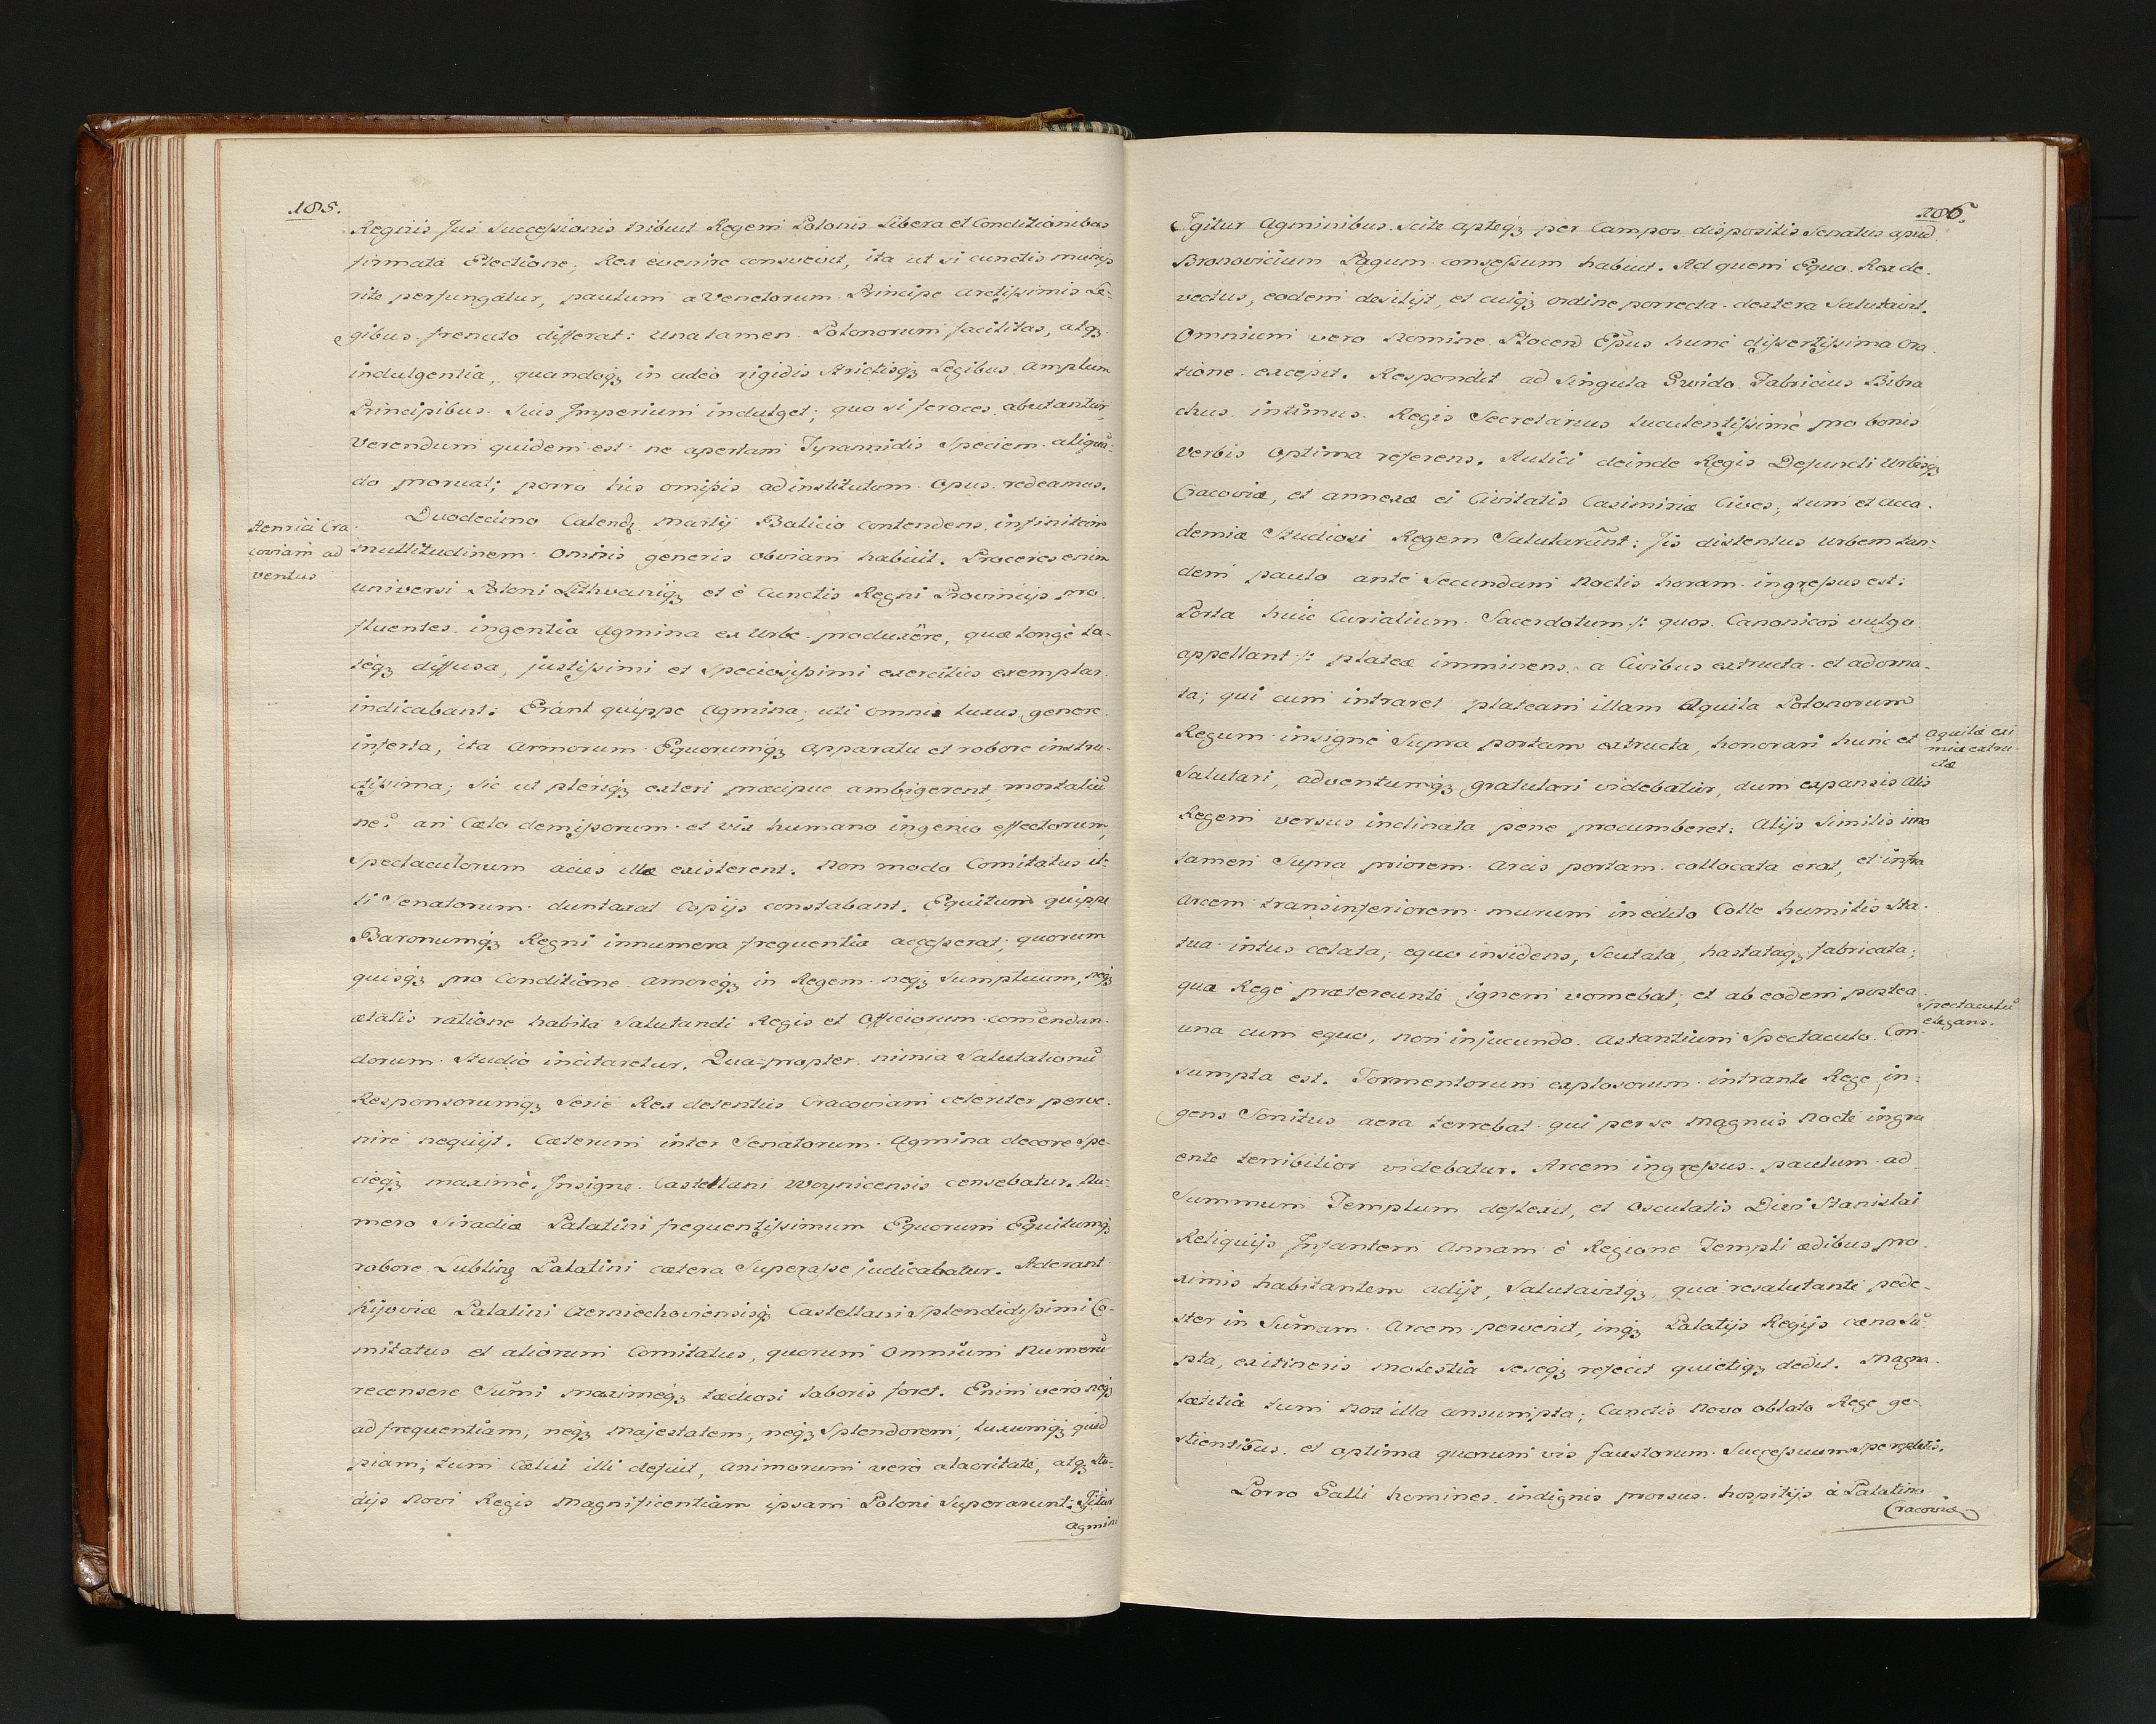 185.
Regiis Jus Successionis tribuit Regem Polonis Libera et Conditionibus
firmata Electione, Rex evenire consuevit, ita ut si cunctis munijs
rite perfungatur, paulum a Venetorum Principe arctissimis Le-
gibus frenato differat: una tamen Polonorum facilitas, atqz
indulgentia, quandoqz in adeo rigidis strictisqz Legibus amplum
Principibus suis Imperium indulget; quo si feroces abutantur,
Verendum quidem est ne apertam Tyrannidis Speciem aliquã-
do promat; porro his omissis ad institutum opus redeamus.
Henrici Cra-
coviam ad
ventus
Duodecimo Calend Martij Balicio contendens infinitam
multitudinem omnis generis obviam habuit. Proceres enim
universi Poloni Lithvaniqz et è cunctis Regni Provincijs pro-
fluentes ingentia agmina ex Urbe produxêre, quæ longè la-
teqz diffusa, justissimi et speciosissimi exercitus exemplar
indicabant: Erant quippe agmina, uti omnis luxus genere
inferta, ita Armorum Equorumqz apparatu et robore instru-
ctissima; sic ut pleriqz exteri præcipue ambigerent, mortaliũ
ne? an Cælo demissorum et vix humano ingenio effectorum,
Spectaculorum acies illæ existerent. Non modo Comitatus il-
li Senatorum duntaxat Copijs constabant. Equitum quippe
Baronumqz Regni innumera frequentia accesserat; quorum
quisqz pro Conditione amoreqz in Regem neqz sumptuum, neqz
ætatis ratione habita Salutandi Regis et Officiorum comendan-
dorum Studio incitaretur. Qua-propter nimia Salutationũ
Responsorumqz Serie Rex detentus Cracoviam celeriter perve-
nire nequijt. Cæterum inter Senatorum Agmina decore spe-
cieqz maximè Insigne Castellani Woynicensis censebatur. Nu-
mero Siradiæ Palatini frequentissimum Equorum Equitumqz
robore Lublinz Palatini cætera Superasse judicabatur. Aderant
Kijoviæ Palatini Czerniechoviensisqz Castellani Splendidissimi Co-
mitatus et aliorum Comitatus, quorum omnium Numerũ
recensere Sũmi maximeqz tædiosi laboris foret. Enim vero neqz
ad frequentiam, neqz Majestatem, neqz Splendorem, luxumqz quid
piam, tum Cœlui illi defuit, animorum verò alacritate, atqz stu-
dijs Novi Regis Magnificentiam ipsam Poloni Superarunt. Igitur
Agmini
186.
Igitur Agminibus Scite apteqz per Campos dispositis Senatus apud
Bronovicium Pagum consessum habuit. Ad quem Equo Rex de-
vectus, eodem desilijt, et cuiqz ordine porrecta dextera Salutavit.
Omnium vero Nomine Plocen Epus hunc dissertissima Ora-
tione excepit. Respondit ad Singula Gwido Fabricius Bibra
chus intimus Regis Secretarius luculentissimè pro bonis
Verbis Optima referens. Aulici deinde Regis Defuncti Urbisqz
Cracoviæ, et annexæ ei Civitatis Casimiriæ Cives, tum et Acca-
demiæ Studiosi Regem Salutarũnt: Jis distentus Urbem tan-
dem paulo antè Secundam Noctis horam ingressus est:
Porta huic Curialium Sacerdotum /: quos Canonicos vulgo
appellant :/ plateæ imminens a Civibus extructa et adorna-
ta; qui cum intraret plateam illam Aquila Polonorum
Regum insigne Supra portam extructa, honorari hunc et
Aquilæ exi
miæ extru-
ctæ
Salutari, adventumqz gratulari videbatur, dum expansis Alis
Regem versus inclinata pene procumberet: Alijs Similis imo
tamen Supra priorem Arcis portam collocata erat, et infra
Arcem trans inferiorem murum in edito Colle humilis Sta-
tua intus celata, equo insidens, Scutata, hastataqz fabricata;
quæ Rege prætereunte ignem vomebat, et ab eodem postea
Spectaculũ
elegans.
una cum equo, non injucundo Astantium Spectaculo Con-
sumpta est. Tormentorum explosorum intrante Rege, in-
gens Sonitus aera terrebat qui per se magnus Nocte ingru
ente terribilior videbatur. Arcem ingressus paulum ad
Summum Templum deflexit, et Osculatis Divi Stanislai
Reliquijs Infantem Annam è Regione Templi ædibus pro-
ximis habitantem adijt, Salutavitqz, qua resalutante pede-
ster in Sũmam Arcem pervenit, inqz Palatijs Regijs cœna Sũ-
pta, ex itineris molestia seseqz refecit quietiqz dedit. Magna
lætitia tum nox illa consumpta; Cunctis Novo oblato Rege ge-
stientibus et optima quorum vis faustorum Successuum Spe repletis.
Porro Galli homines indignis prorsus hospitijs à Palatino
Cracoviæ